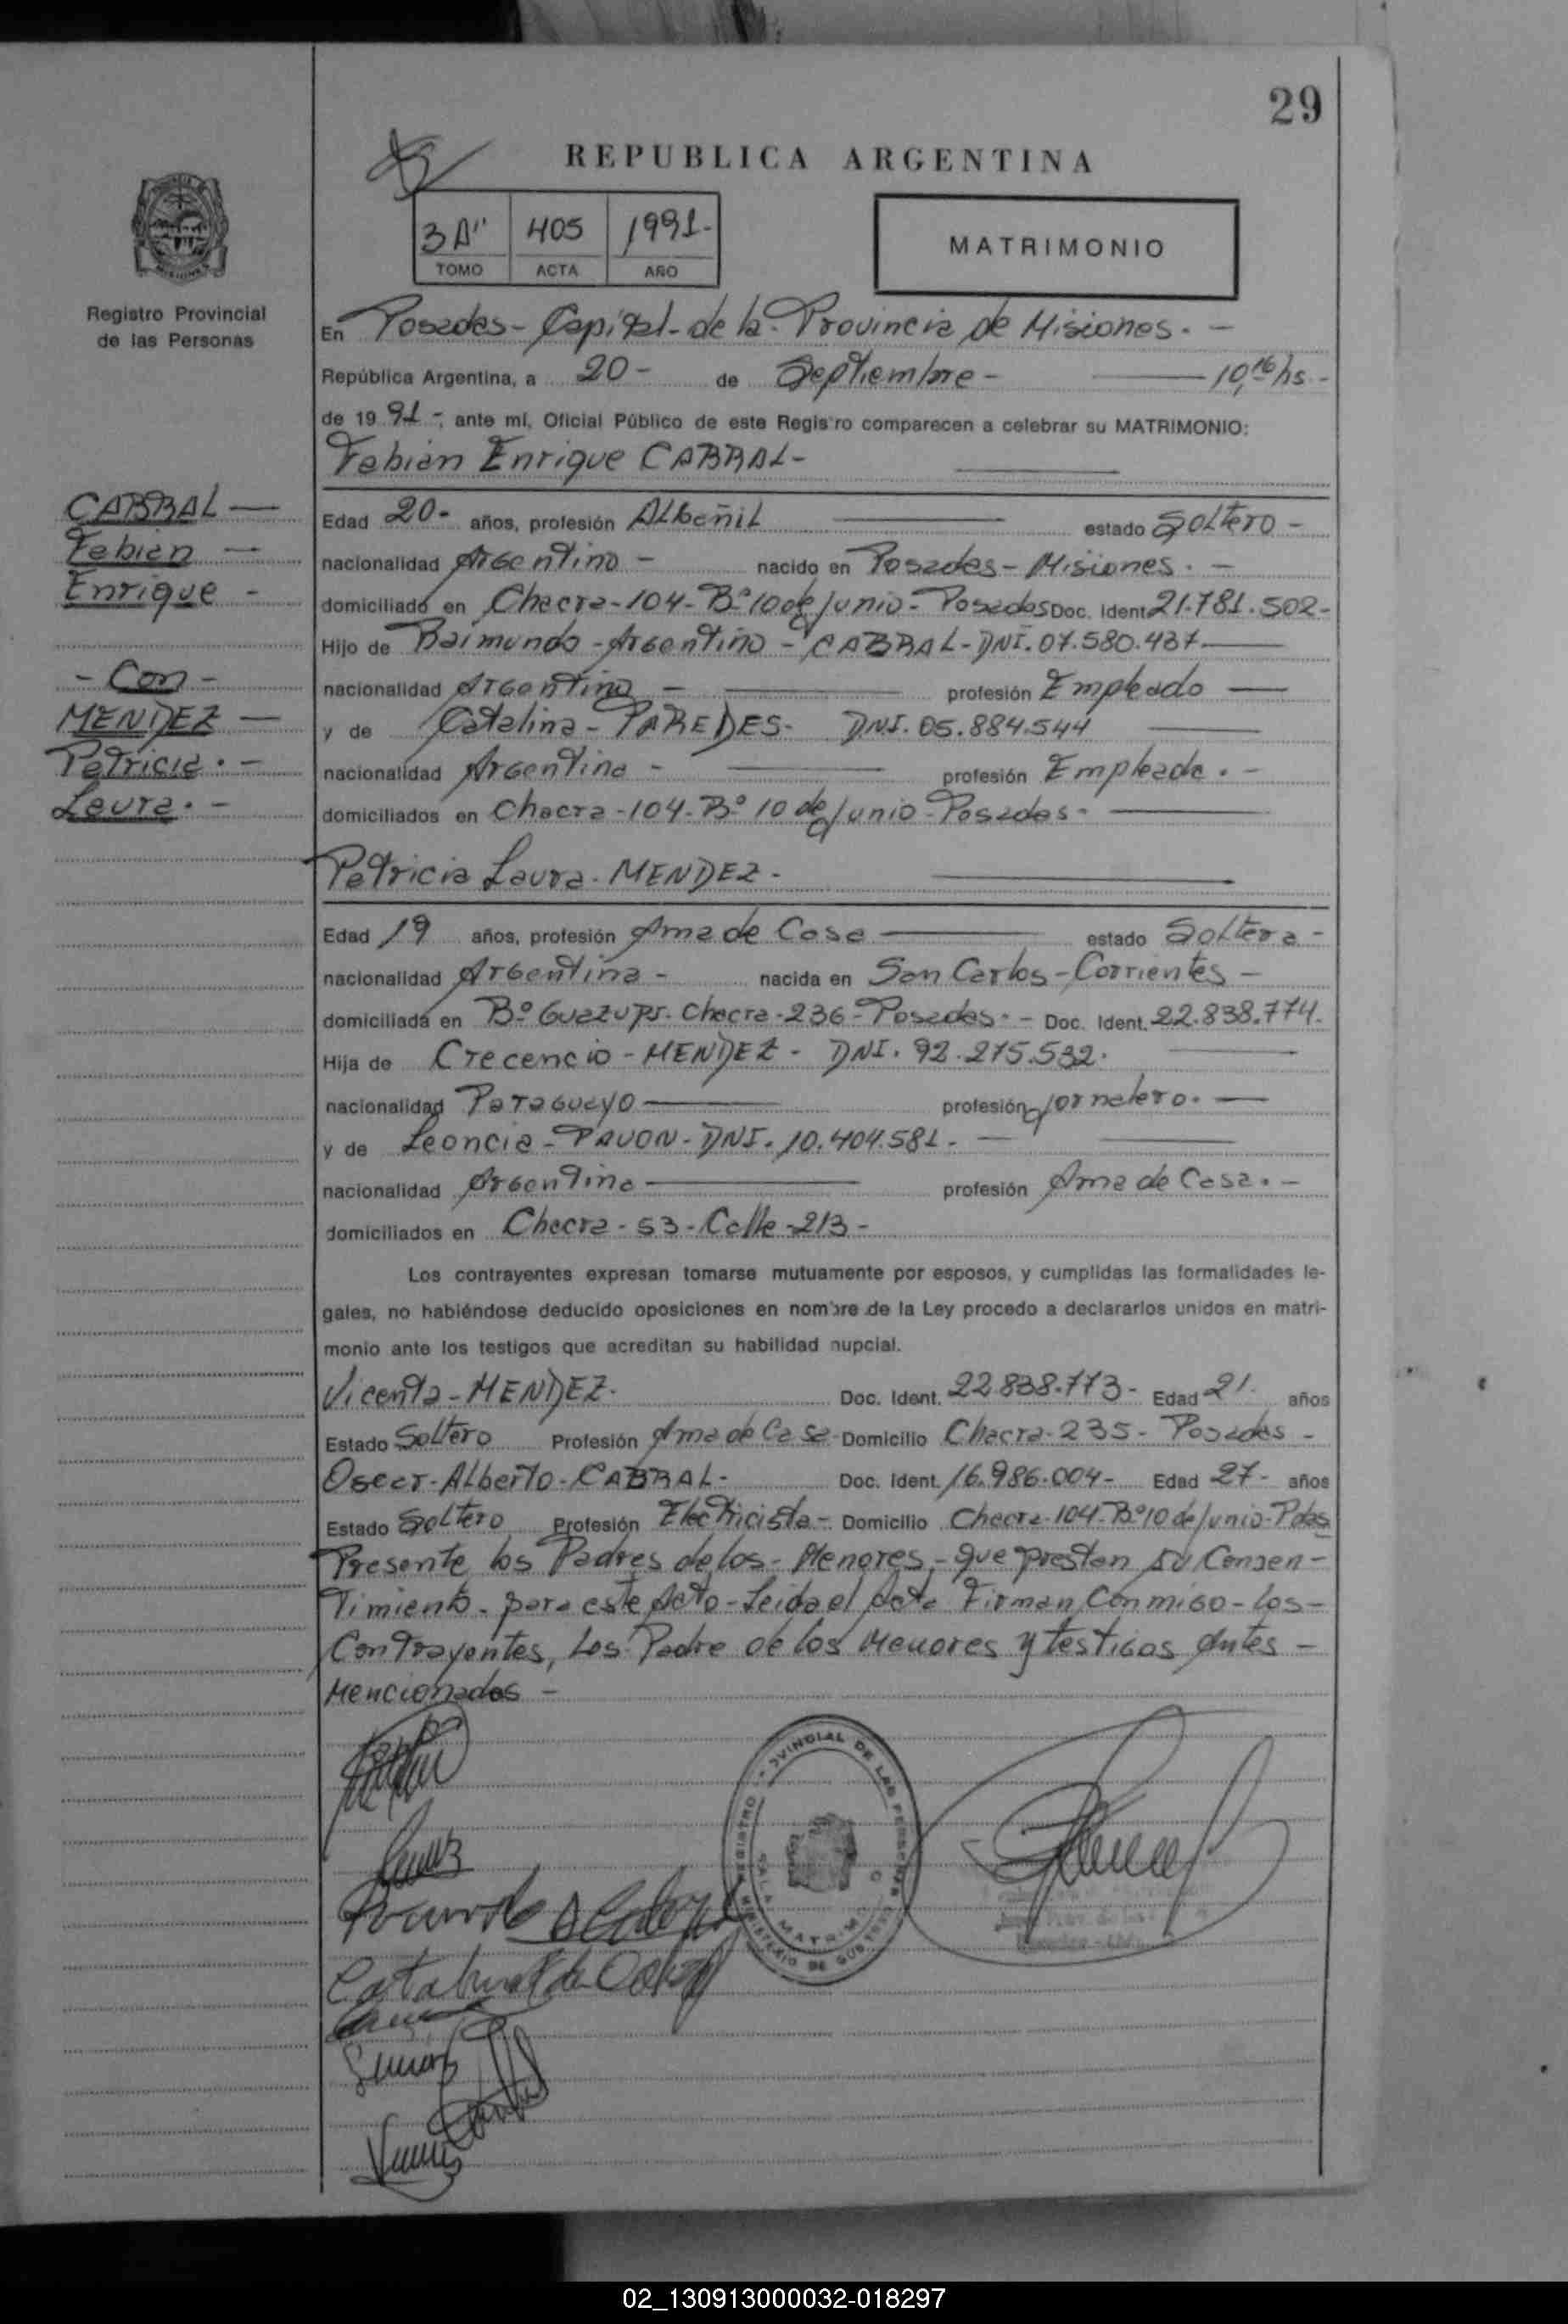 29
REPUBLICA ARGENTINA
3 A" 405 1991.-
TOMO ACTA AÑO
MATRIMONIO
Registro Provincial
de las Personas
En Posadas - Capital - de la - Provincia de Misiones. -
República Argentina, a 20 - de Septiembre - 10,16 hs. -
de 19 91 -, ante mí, Oficial Público de este Registro comparecen a celebrar su MATRIMONIO:
Fabián Enrique CABRAL -
CABRAL -
Fabián -
Enrique -
- Con -
MENDEZ -
Patricia. -
Laura. -
Edad 20 - años, profesión Albañil estado Soltero -
nacionalidad Argentino - nacido en Posadas - Misiones. -
domiciliado en Chacra - 104 - Bº 10 de Junio - Posadas Doc. Ident. 21.781.502 -
Hijo de Raimundo - Argentino - CABRAL - DNI. 07.580.437
nacionalidad Argentino - profesión Empleado -
y de Catalina - PAREDES - DNI. 05.884.544
nacionalidad Argentina - profesión Empleada. -
domiciliados en Chacra - 104 - Bº 10 de Junio - Posadas -
Patricia Laura - MENDEZ -
Edad 19 años, profesión Ama de Casa estado Soltera -
nacionalidad Argentina - nacida en San Carlos - Corrientes -
domiciliada en Bº Guazupi. Chacra - 236 - Posadas - - Doc. Ident. 22.838.774.
Hija de Crecencio - MENDEZ - DNI. 92.275.532.
nacionalidad Paraguayo profesión Jornalero. -
y de Leoncia - PAVON - DNI. 10.404.581. -
nacionalidad Argentina profesión Ama de Casa. -
domiciliados en Chacra - 53 - Calle - 213 -
Los contrayentes expresan tomarse mutuamente por esposos, y cumplidas las formalidades le-
gales, no habiéndose deducido oposiciones en nombre de la Ley procedo a declararlos unidos en matri-
monio ante los testigos que acreditan su habilidad nupcial.
Vicenta - MENDEZ. Doc. Ident. 22.838.773 - Edad 21. años
Estado Soltero Profesión Ama de Casa - Domicilio Chacra - 235 - Posadas -
Oscar - Alberto - CABRAL - Doc. Ident. 16.986.004 - Edad 27 - años
Estado Soltero Profesión Electricista - Domicilio Chacra - 104 - Bº 10 de Junio - Pdas
Presente los Padres de los - Menores, - que prestan su Consen -
timiento - para este Acto - Leida el Acta Firman Conmigo - los -
Contrayentes, Los Padre de los Menores y testigos Antes -
Mencionados -
REGISTRO PROVINCIAL DE LAS PERSONAS
MINISTERIO DE GOBIERNO
SALA MATRIMO
02_130913000032-018297